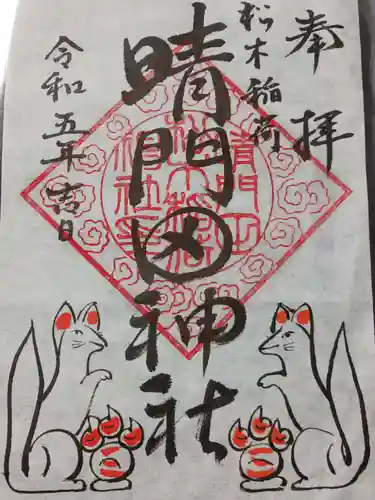 奉拝
松木稲荷
晴門田神社
令和五年 吉日